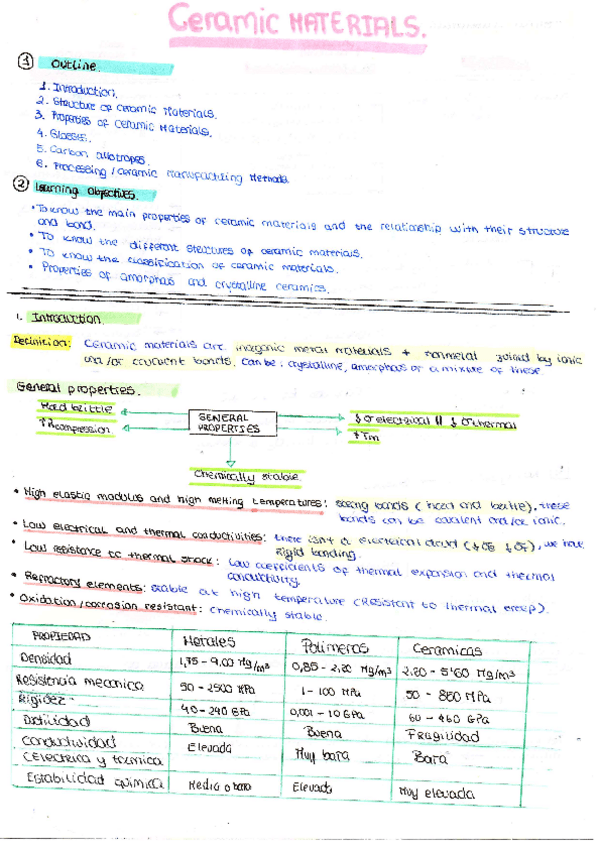 Ceramic MATERIALS.
1 Outline.
1. Introduction.
2. Structure of Ceramic Materials.
3. Properties of Ceramic Materials.
4. Glasses.
5. Carbon allotropes.
6. Processing / ceramic manufacturing Methods
2 Learning Objectives.
• To know the main properties of ceramic materials and the relationship with their structure
and bond.
• To know the different structures of ceramic materials.
• To know the classification of ceramic materials.
• Properties of amorphas and crystalline ceramics.
1. Introduction.
Definition: Ceramic materials are inorganic metal materials + nonmetal joined by ionic
and/or covalent bonds. Can be: crystalline, amorphas or a mixture of these
General properties.
Hard brittle
GENERAL
PROPERTIES
↓ σ electrical || ↓ σ thermal
↑ Rcompression
↑ Tm
Chemically stable
• High elastic modulus and high melting temperatures: strong bonds (hard and brittle), these
bonds can be covalent and/or ionic.
• Low electrical and thermal conductivities: there isn't a electrical cloud (↓σE ↓σT), we have
rigid bonding.
• Low resistance to thermal shock: low coefficients of thermal expansion and thermal
conductivity.
• Refractory elements: stable at high temperature (Resistant to thermal creep).
• Oxidation/corrosion resistant: chemically stable.
PROPIEDAD Metales Polimeros Ceramicas
Densidad 1,75 - 9,00 Mg/m³ 0,85 - 2,20 Mg/m³ 2,20 - 5'60 Mg/m³
Resistencia mecanica 50 - 2500 MPa 1 - 100 MPa 50 - 850 MPa
Rigidez 40 - 240 GPa 0,001 - 10 GPa 60 - 460 GPa
Ductilidad Buena Buena Fragilidad
Conductividad Elevada Muy baja Baja
(Electrica y termica
Estabilidad quimica Media o baja Elevada Muy elevada